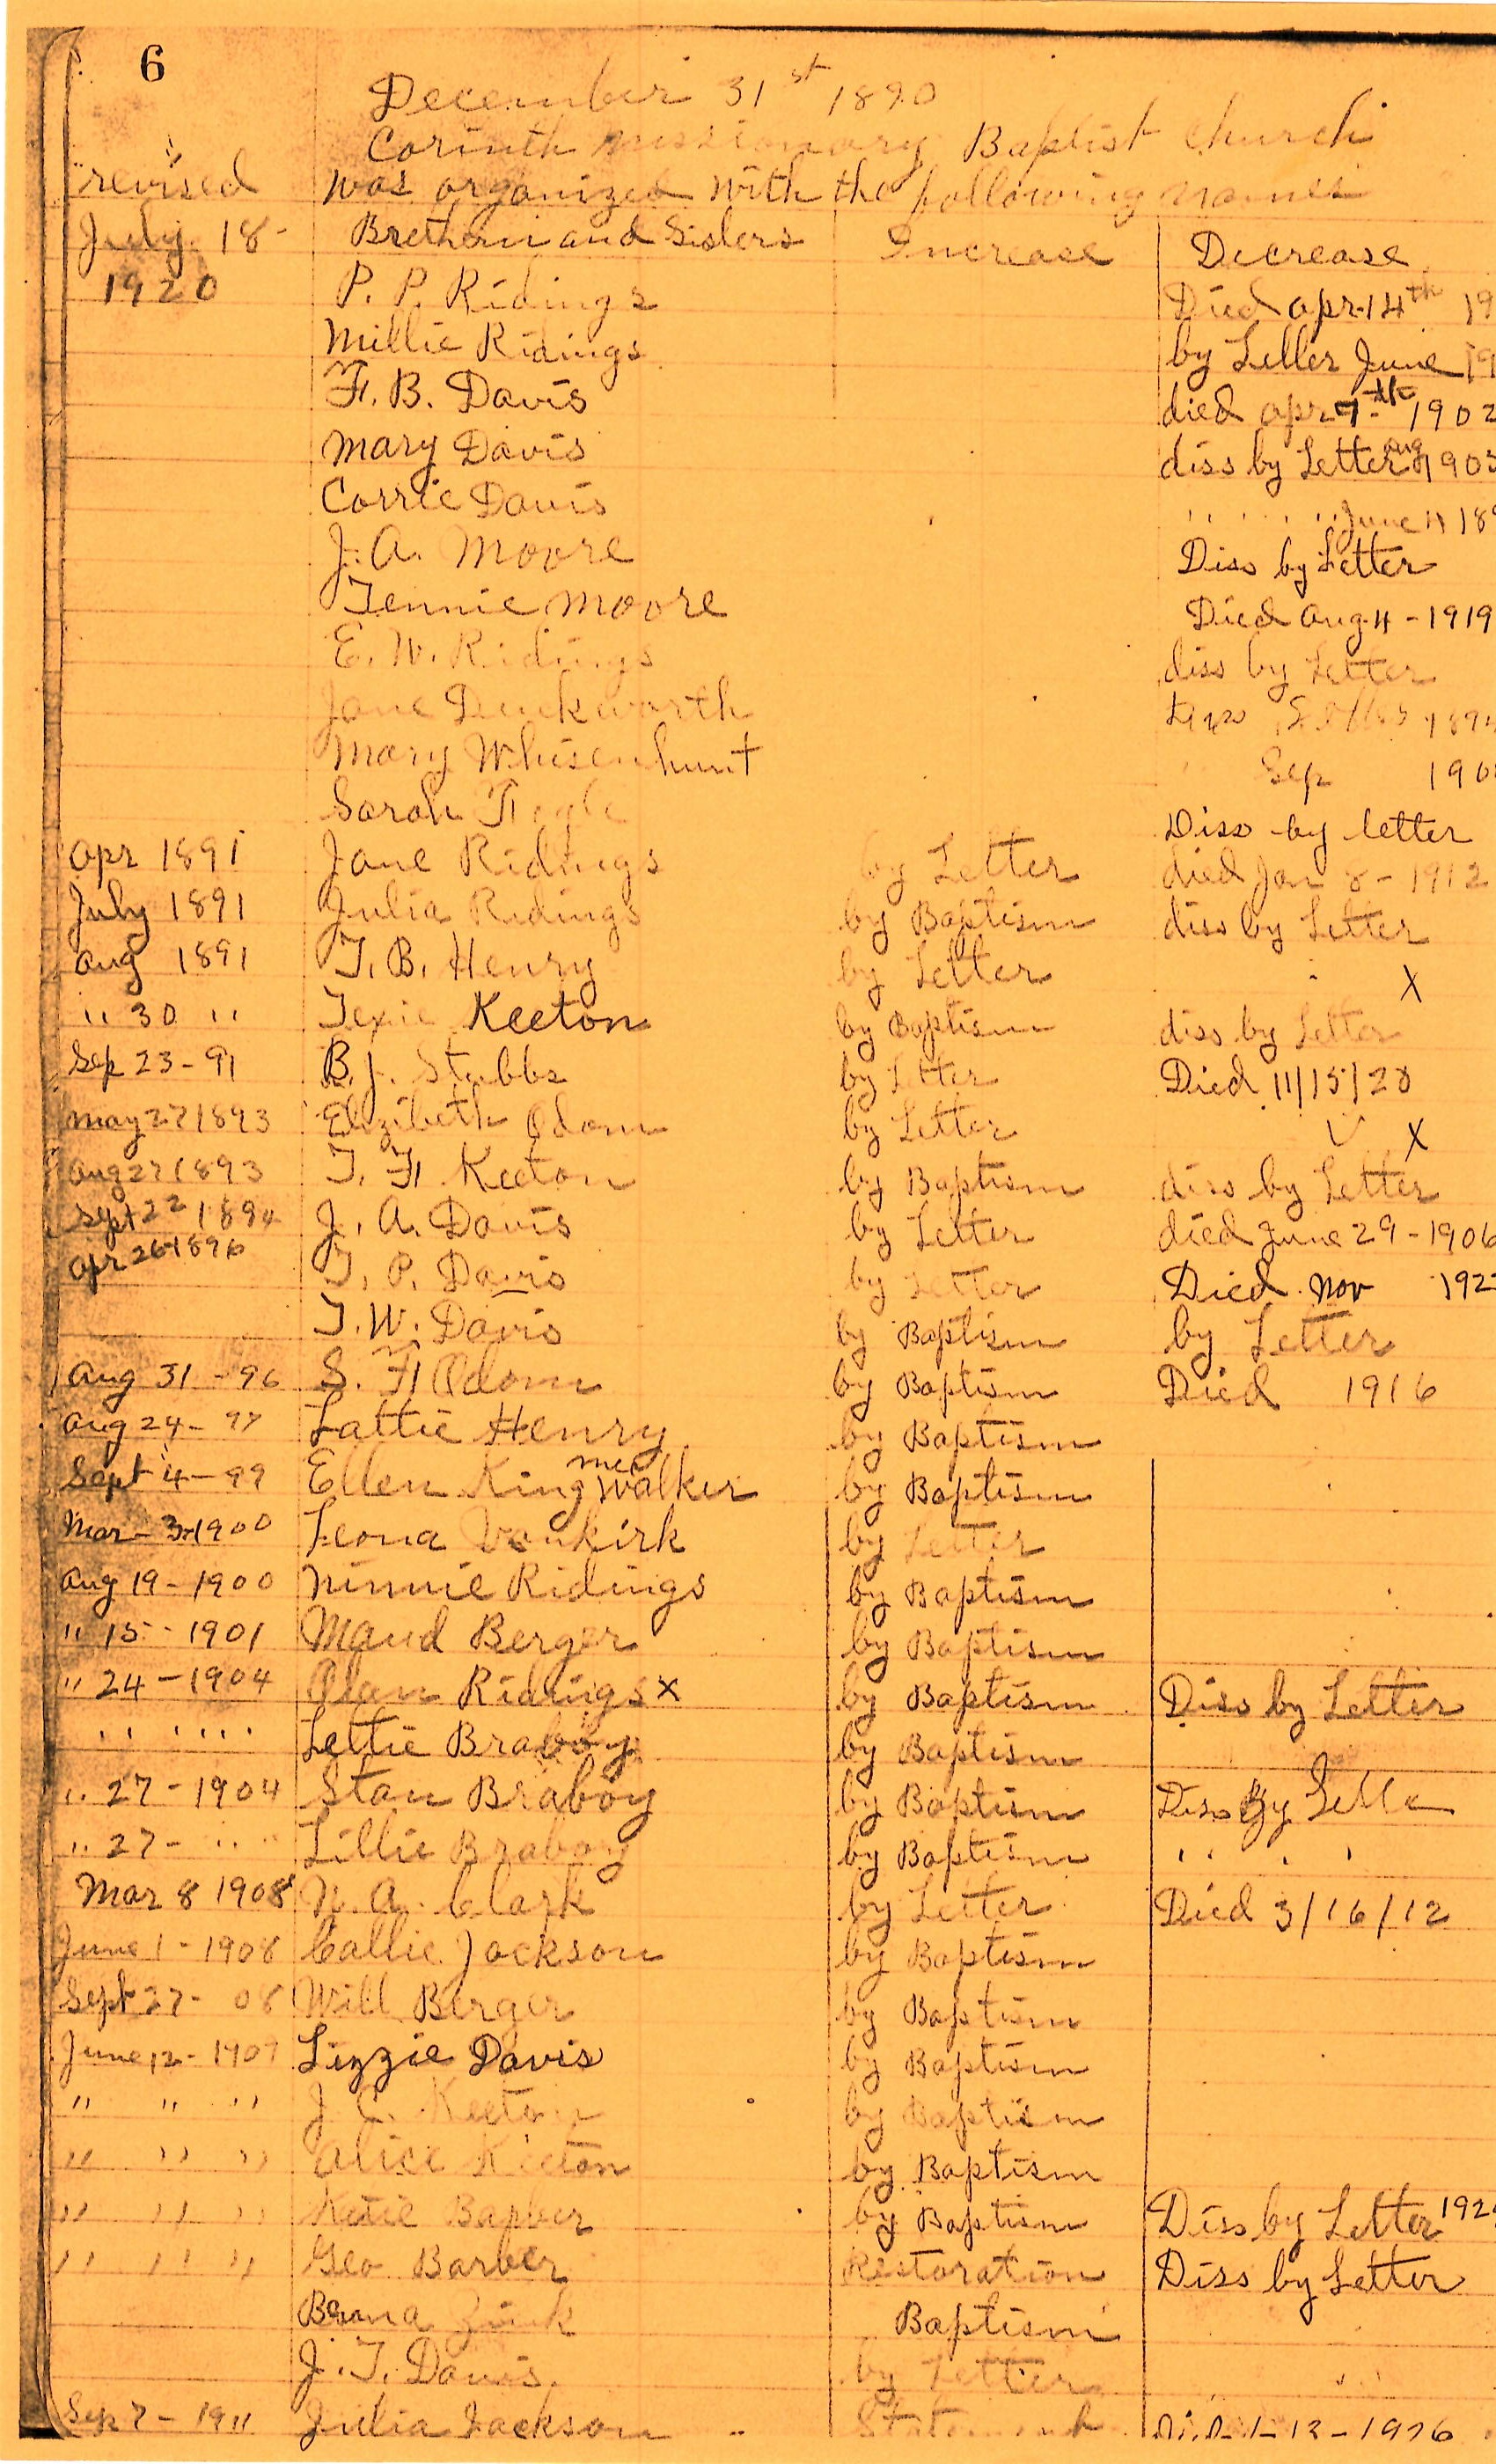 6
December 31st 1890
Corinth missionary Baptist Church
revised was organized with the following names
July 18- Brethern and Sisters Increase Decrease
1920 P. P. Ridings Died apr. 14th 19
Millie Ridings by Letter June 19
F. B. Davis died apr 7th 1902
Mary Davis diss by Letter aug 190
Corrie Davis " " " June 11 18
J. A. Moore Diss by Letter
Tennie Moore Died aug. 4 - 1919
E. W. Ridings diss by Letter
Jane Duckworth 189
Mary Whisenhunt Sep 190
Sarah Diss by letter
apr 1891 Jane Ridings by Letter died Jan 8 - 1912
July 1891 Julia Ridings by Baptism diss by Letter
aug 1891 T. B. Henry by Letter X
" 30 " Texie Keeton by Baptism diss by Letter
Sep 23 - 91 B. J. Stubbs by Letter Died 11/15/28
may 27 1893 Elizibeth Odom by Letter X
aug 27 1893 T. F. Keeton by Baptism diss by Letter
Sept 22 1894 J. A. Davis by Letter died June 29 - 1906
apr 26 1896 T. P. Davis by Letter Died Nov 192
T. W. Davis by Baptism by Letter
Aug 31 - 96 S. F. Odom by Baptism Died 1916
aug 24 - 97 Lattie Henry by Baptism
Sept 4 - 99 Ellen King Mc Walker by Baptism
Mar - 3 - 1900 Leona Vankirk by Letter
aug 19 - 1900 Ninnie Ridings by Baptism
" 15 - 1901 Maud Berger by Baptism
" 24 - 1904 Olan Ridings x by Baptism Diss by Letter
" " " Lettie Braboy by Baptism
" 27 - 1904 Stan Braboy by Baptism Diss By Letter
" 27 - " " Lillie Braboy by Baptism " " "
Mar 8 1908 N. A. Clark by Letter Died 3/16/12
June 1 - 1908 Callie Jackson by Baptism
Sept 27 - 08 Will Berger by Baptism
June 12 - 1907 Lizzie Davis by Baptism
" " " J. C. Keeton by Baptism
" " " Alice Keeton by Baptism
" " " Katie Barber by Baptism Diss by Letter 192
" " " Geo Barber Restoration Diss by Letter
Zink Baptism
J. T. Davis by Letter
Sep 7 - 1911 Julia Jackson Statement Died 1-13-1926